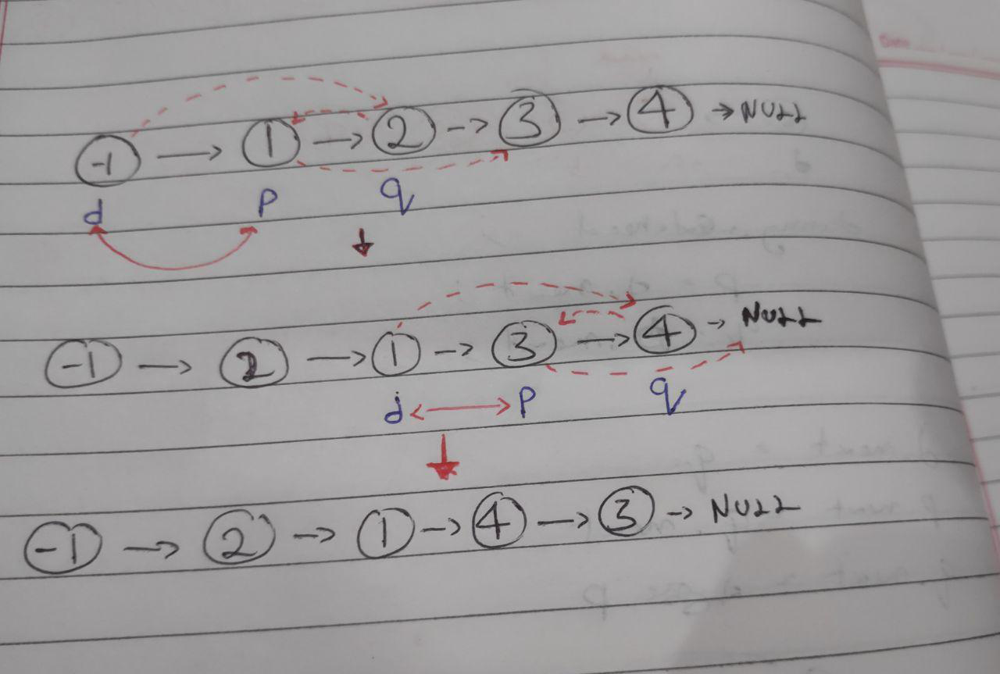 -1 → 1 → 2 → 3 → 4 → NULL
d p q
-1 → 2 → 1 → 3 → 4 → NULL
d ↔ p q
-1 → 2 → 1 → 4 → 3 → NULL